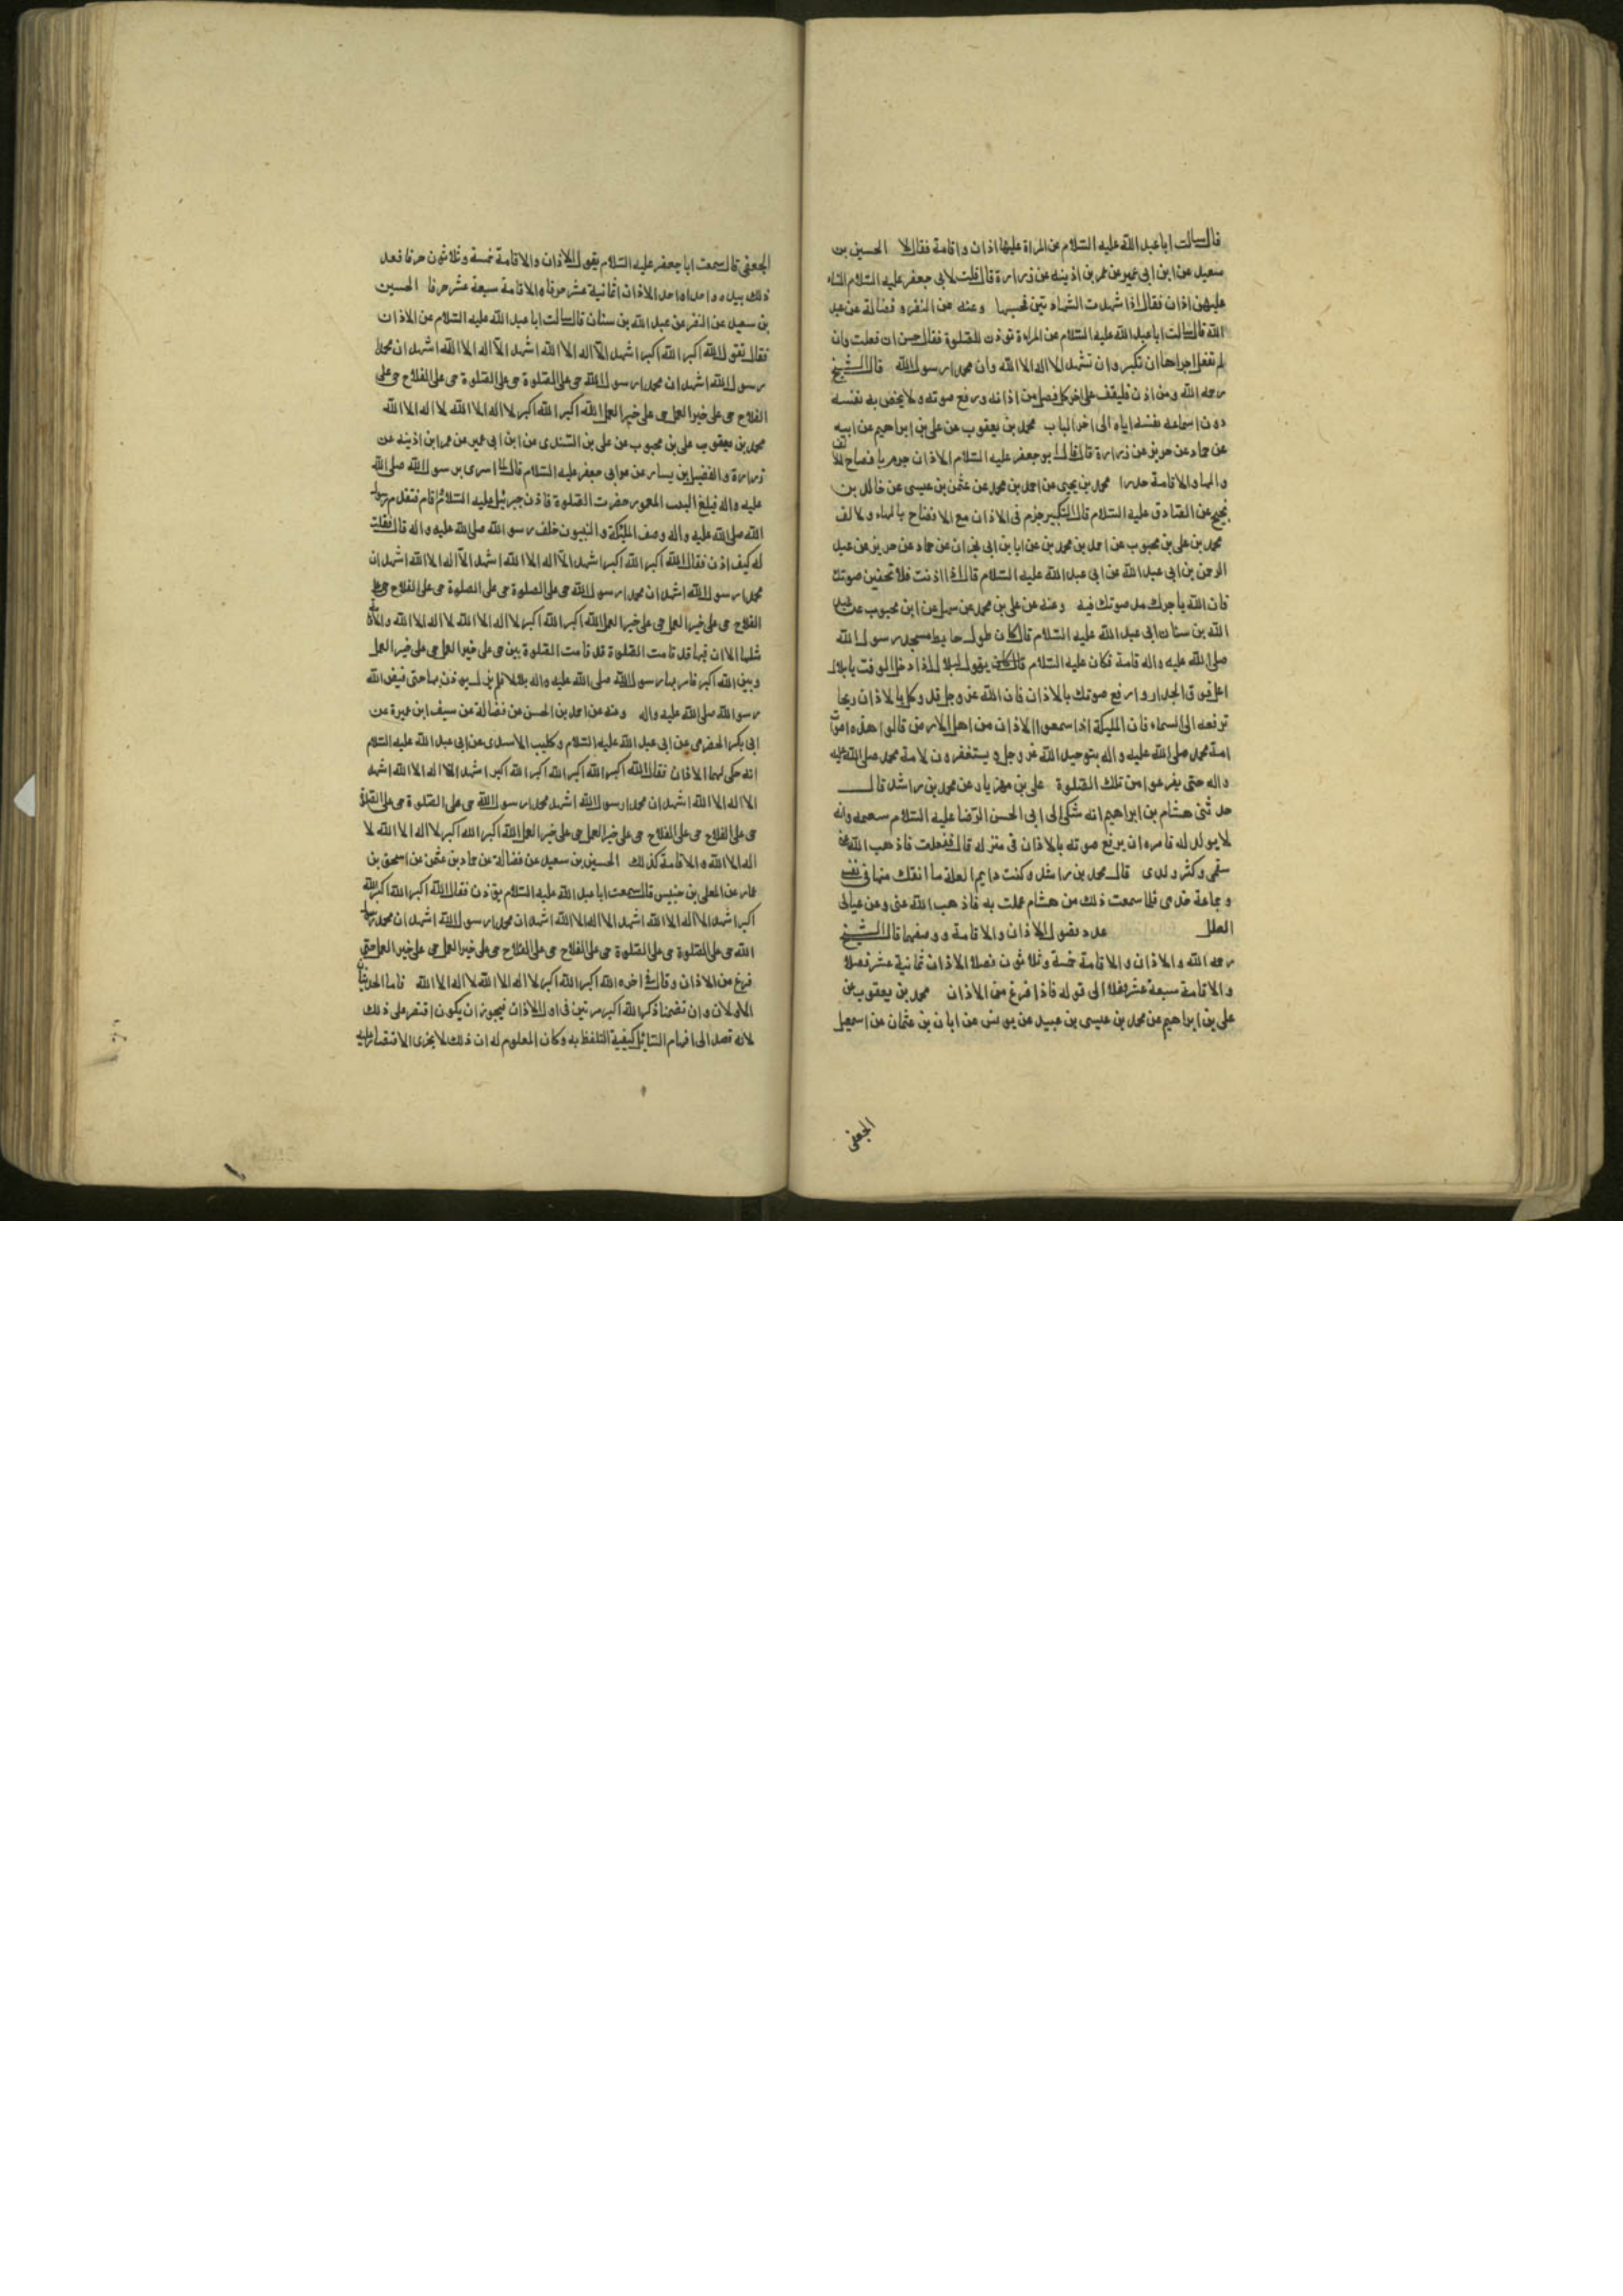 قال سالت ابا عبد الله عليه السلام عن المراة عليها اذان واقامة فقال لا الحسين بن
سعيد عن ابن ابى عمير عن عمر بن اذينه عن زرارة قال قلت لابى جعفر عليه السلام النساء
عليهن اذان فقال اذا شهدت الشهادتين فحسبها وعنه عن النضر وفضالة عن عبد
الله قال سالت ابا عبد الله عليه السلام عن المراة توذن للصلوة فقال حسن ان فعلت وان
لم تفعل اجزاها ان تكبر وان تشهد ان لا اله الا الله وان محمدا رسول الله قال الشيخ
رحمه الله ومن اذن فليقف على اخر كل فصل من اذانه ورفع صوته ولا يخفض به نفسه
دون اسماعه نفسه اياه الى اخر الباب محمد بن يعقوب عن على بن ابراهيم عن ابيه
عن حماد عن حريز عن زرارة قال قال ابو جعفر عليه السلام الاذان جزم بافصاح الالف
والهاء والاقامة حدرا محمد بن يحيى عن احمد بن محمد عن عثمن بن عيسى عن خالد بن
نجيح عن الصادق عليه السلام قال التكبير جزم فى الاذان مع الافصاح بالهاء والالف
محمد بن على بن محبوب عن احمد بن محمد بن عن ابا بن ابى نجران عن حماد عن حريز عن عبد
الرحمن بن ابى عبد الله عن ابى عبد الله عليه السلام قال اذا اذنت فلا تخفين صوتك
فان الله ياجرك مد صوتك فيه وعنه عن على بن محمد عن سهل عن ابن محبوب عن عبد
الله بن سنان ابى عبد الله عليه السلام قال كان طول حايط مسجد رسول الله
صلى الله عليه واله قامة فكان عليه السلام يقول لبلال اذا دخل الوقت يا بلال
اعل فوق الجدار وارفع صوتك بالاذان فان الله عز وجل قد وكل بالاذان ريحا
ترفعه الى السماء فان المليكة اذا سمعوا الاذان من اهل الارض قالوا هذه اصوات
امة محمد صلى الله عليه واله بتوحيد الله عز وجل ويستغفرون لامة محمد صلى الله عليه
واله حتى يفرغوا من تلك الصلوة على بن مهزيار عن محمد بن راشد قال
حدثنى هشام بن ابراهيم انه شكى الى ابى الحسن الرضا عليه السلام سقمه وانه
لا يولد له فامره ان يرفع صوته بالاذان فى منزله قال ففعلت فاذهب الله عنى
سقمى وكثر ولدى قال محمد بن راشد وكنت دايم العلة ما انفك منها فى نفسى
وجماعة خدمى فلما سمعت ذلك من هشام عملت به فاذهب الله عنى وعن عيالى
العلل عدد فصول الاذان والاقامة ووصفهما قال الشيخ
رحمه الله والاذان والاقامة خمسة وثلاثون فصلا الاذان ثمانية عشر فصلا
والاقامة سبعة عشر فصلا الى قوله فاذا فرغ من الاذان محمد بن يعقوب عن
على بن ابراهيم عن محمد بن عيسى بن عبيد عن يونس عن ابان بن عثمان عن اسمعيل
الجعفى
الجعفى قال سمعت ابا جعفر عليه السلام يقول الاذان والاقامة خمسة وثلاثون حرفا فعد
ذلك بيده واحدا واحدا الاذان ثمانية عشر حرفا والاقامة سبعة عشر حرفا الحسين
بن سعيد عن النضر عن عبد الله بن سنان قال سالت ابا عبد الله عليه السلام عن الاذان
فقال تقول الله اكبر الله اكبر اشهد الا اله الا الله اشهد الا اله الا الله اشهد ان محمدا
رسول الله اشهد ان محمدا رسول الله حى على الصلوة حى على الصلوة حى على الفلاح حى على
الفلاح حى على خير العمل حى على خير العمل الله اكبر الله اكبر لا اله الا الله لا اله الا الله
محمد بن يعقوب على بن محبوب عن على بن السندى عن ابن ابى عمير عن عمر ابن اذينه عن
زرارة والفضيل بن يسار عن ابى جعفر عليه السلام قال لما اسرى برسول الله صلى الله
عليه واله فبلغ البيت المعمور حضرت الصلوة فاذن جبرئيل عليه السلام واقام فتقدم رسول
الله صلى الله عليه واله وصف المليكة والنبيون خلف رسول الله صلى الله عليه واله قال فقلت
له كيف اذن فقال الله اكبر الله اكبر اشهد الا اله الا الله اشهد الا اله الا الله اشهد ان
محمدا رسول الله اشهد ان محمدا رسول الله حى على الصلوة حى على الصلوة حى على الفلاح حى على
الفلاح حى على خير العمل حى على خير العمل الله اكبر الله اكبر لا اله الا الله لا اله الا الله والاقامة
مثلها الا ان فيها قد قامت الصلوة قد قامت الصلوة بين حى على خير العمل حى على خير العمل
وبين الله اكبر فامر بها رسول الله صلى الله عليه واله بلالا فلم يزل يوذن بها حتى قبض الله
رسول الله صلى الله عليه واله وعنه عن احمد بن الحسن عن فضالة عن سيف ابن عميرة عن
ابى بكر الحضرمى عن ابى عبد الله عليه السلام وكليب الاسدى عن ابى عبد الله عليه السلام
انه حكى لهما الاذان فقال الله اكبر الله اكبر الله اكبر الله اكبر اشهد الا اله الا الله اشهد
الا اله الا الله اشهد ان محمدا رسول الله اشهد محمدا رسول الله حى على الصلوة حى على الصلوة
حى على الفلاح حى على الفلاح حى على خير العمل حى على خير العمل الله اكبر الله اكبر لا اله الا الله لا
اله الا الله والاقامة كذلك الحسين بن سعيد عن فضالة عن حماد بن عثمن عن اسحق بن
عمار عن المعلى بن خنيس قال سمعت ابا عبد الله عليه السلام يوذن فقال الله اكبر الله اكبر الله
اكبر اشهد الا اله الا الله اشهد الا اله الا الله اشهد ان محمدا رسول الله اشهد ان محمدا رسول
الله حى على الصلوة حى على الصلوة حى على الفلاح حى على الفلاح حى على خير العمل حى على خير العمل حتى
فرغ من الاذان وقال فى اخره الله اكبر الله اكبر لا اله الا الله لا اله الا الله فاما الحديثان
الاولان وان تضمنا ذكر الله اكبر مرتين فى اول الاذان فيجوز ان يكون اقتصر على ذلك
لانه قصد الى افهام السائل كيفية التلفظ به وكان المعلوم له ان ذلك لا يجزى الاقتصار عليه